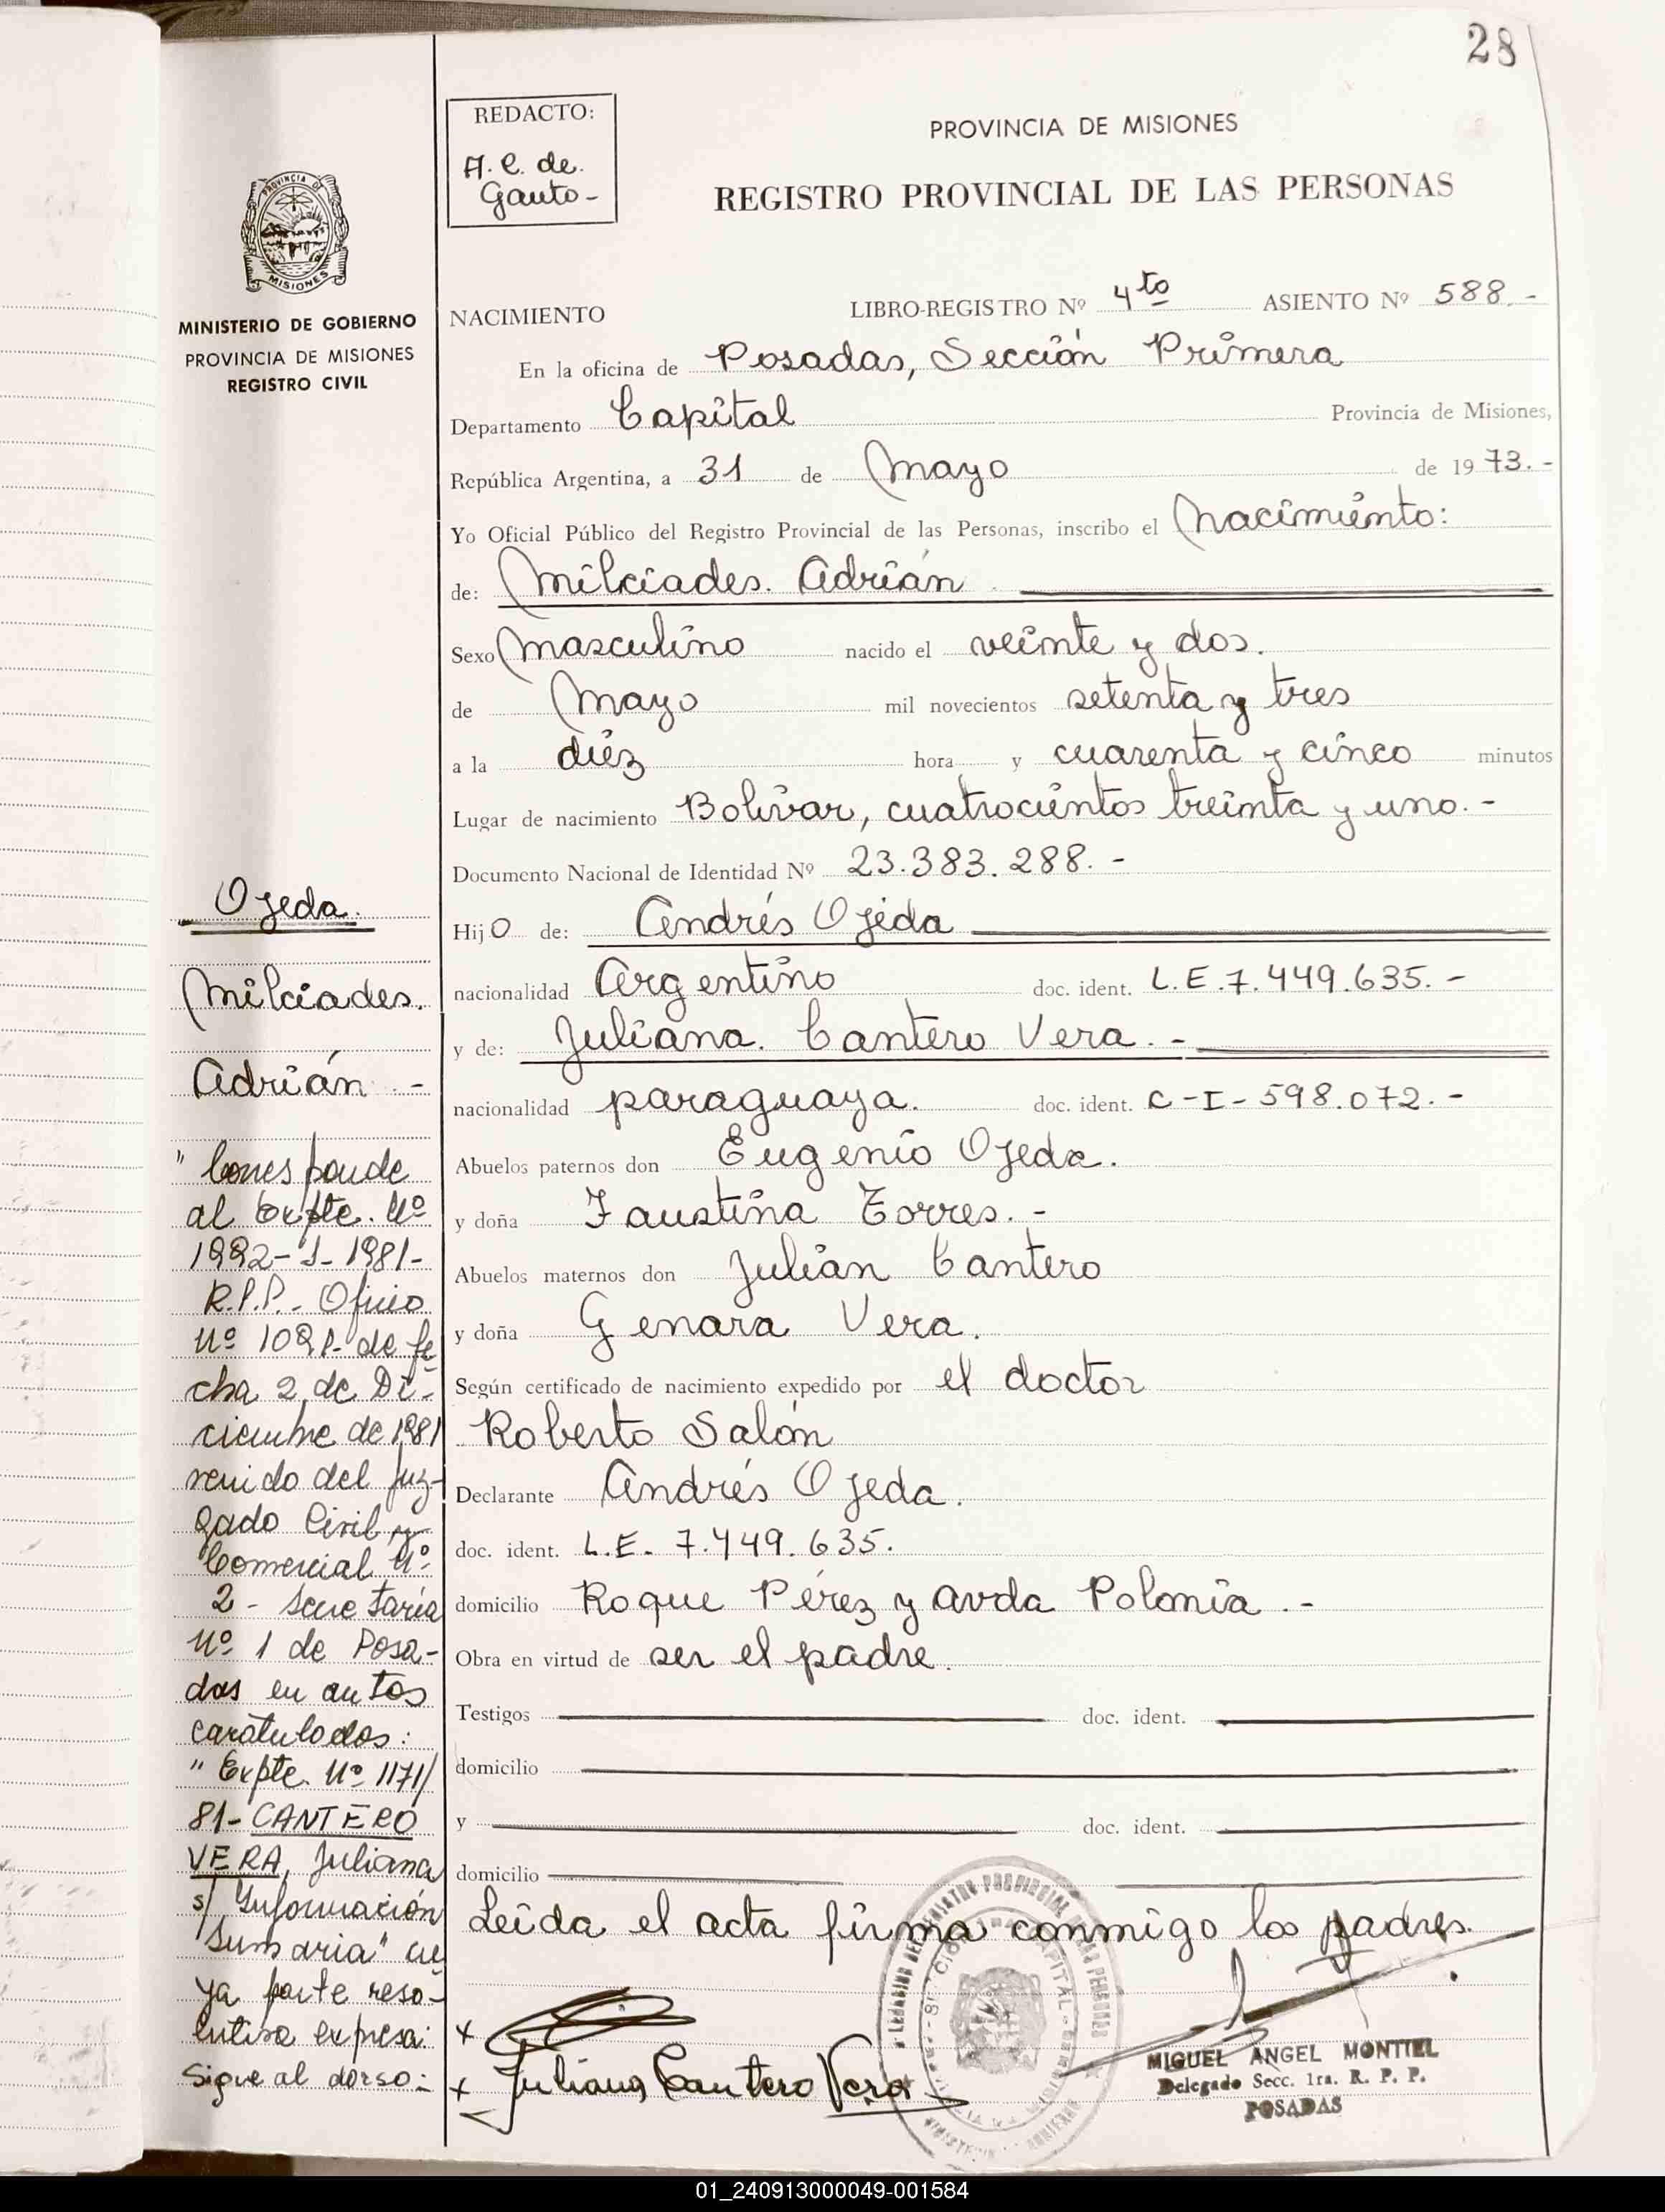 28
REDACTO:
A. C. de.
Gauto-
PROVINCIA DE MISIONES
REGISTRO PROVINCIAL DE LAS PERSONAS
PROVINCIA DE
MISIONES
MINISTERIO DE GOBIERNO
PROVINCIA DE MISIONES
REGISTRO CIVIL
NACIMIENTO LIBRO-REGISTRO Nº 4to ASIENTO Nº 588.-
En la oficina de Posadas, Sección Primera
Departamento Capital Provincia de Misiones,
República Argentina, a 31 de Mayo de 1973.-
Yo Oficial Público del Registro Provincial de las Personas, inscribo el Nacimiento:
de: Milciades. Adrián
Sexo Masculino nacido el veinte y dos.
de Mayo mil novecientos setenta y tres
a la diez hora y cuarenta y cinco minutos
Lugar de nacimiento Bolívar, cuatrocientos treinta y uno.-
Documento Nacional de Identidad Nº 23.383.288.-
Hijo de: Andrés Ojeda
nacionalidad Argentino doc. ident. L.E.7.449.635.-
y de: Juliana. Cantero Vera.-
nacionalidad paraguaya. doc. ident. C-I-598.072.-
Abuelos paternos don Eugenio Ojeda.
y doña Faustina Torres.-
Abuelos maternos don Julián Cantero
y doña Genara Vera.
Según certificado de nacimiento expedido por el doctor
Roberto Salón
Declarante Andrés Ojeda.
doc. ident. L.E. 7.449.635.
domicilio Roque Pérez y avda Polonia.-
Obra en virtud de ser el padre.
Testigos doc. ident.
domicilio
y doc. ident.
domicilio
Leída el acta firma conmigo los padres.
x
x Juliana Cantero Vera
MIGUEL ANGEL MONTIEL
Delegado Secc. 1ra. R. P. P.
POSADAS
Ojeda.
Milciades.
Adrián.-
"Corresponde
al Expte. Nº
1992-J-1981-
R.P.P.- Oficio
Nº 1091- de fe
cha 2 de Di-
ciembre de 1981
venido del Juz-
gado Civil y
Comercial Nº
2- Secretaría
Nº 1 de Posa-
das en autos
caratulados:
"Expte. Nº 1171/
81- CANTERO
VERA, Juliana
s/ Información
Sumaria" cu
ya parte reso-
lutiva expresa:
Sigue al dorso:-
01_240913000049-001584